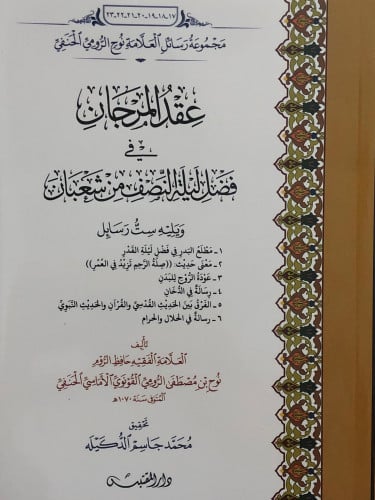 ١٧-١٨-١٩-٢٠-٢١-٢٢-٢٣
مَجْمُوعَةُ رَسَائِلِ العَلَّامَةِ نُوحٍ الرُّومِيِّ الحَنَفِيِّ
عِقْدُ المَرْجَانِ
فِي
فَضْلِ لَيْلَةِ النِّصْفِ مِنْ شَعْبَانَ
وَيَلِيهِ سِتُّ رَسَايِل
١ - مَطْلَعُ البَدْرِ فِي فَضْلِ لَيْلَةِ القَدْرِ
٢ - مَعْنَى حَدِيثِ: ((صِلَةُ الرَّحِمِ تَزِيدُ فِي العُمْرِ))
٣ - عَوْدَةُ الرُّوْحِ لِلبَدَنِ
٤ - رِسَالَةٌ فِي الدُّخَانِ
٥ - الفَرْقُ بَيْنَ الحَدِيثِ القُدْسِيِّ وَالقُرْآنِ وَالحَدِيثِ النَّبَوِيِّ
٦ - رسالةٌ في الحلال والحرام
تَأْلِيفُ
العَلَّامَةِ الفَقِيهِ حَافِظِ الرُّومِ
نُوحِ بْنِ مُصْطَفَى الرُّومِيِّ القُونَوِيِّ الأَمَاسِيِّ الحَنَفِيِّ
المُتَوَفَّى سَنَةَ ١٠٧٠هـ
تَحْقِيق
مُحَمَّد جَاسِم الدُّكَيْلَه
دَارُ المُقْتَبَسِ